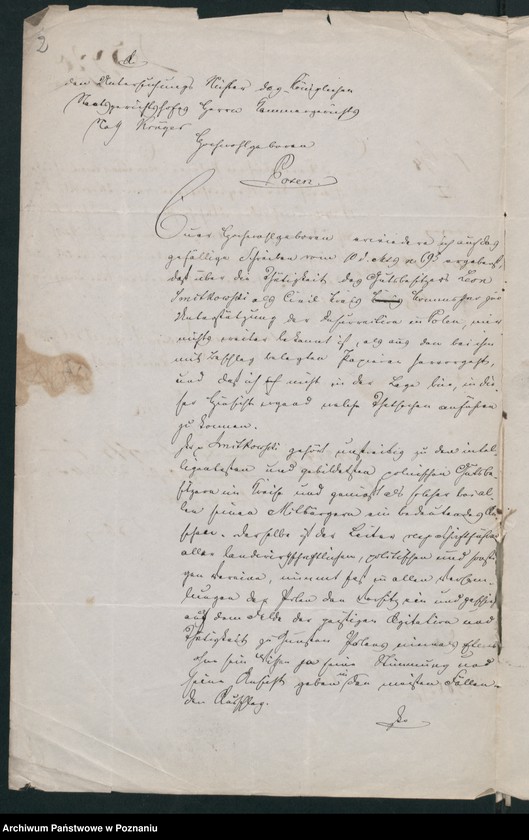 2
An
den Untersuchungs Richter des Königlichen
Staatsgerichtshofes Herrn Kammergerichts
Rath Krüger
Hochwohlgeboren
Posen.
Euer Hochwohlgeboren erwiedere ich auf das
gefällige Schreiben vom 10 d. Mts ergebenst,
daß über die Thätigkeit des Gutsbesitzers Leon
Smitkowski als Civil Kreis Kommissar zur
Unterstützung der Insurrection in Polen, mir
nichts weiter bekannt ist, als aus den bei ihm
mit Beschlag belegten Papieren hervorgeht,
und daß ich nicht in der Lage bin, in die-
ser Hinsicht irgend welche Thatsachen anführen
zu können.
Der Smitkowski gehört unstreitig zu den intel-
ligentesten und gebildetsten polnischen Gutsbe-
sitzern im Kreise und genießt als solcher bei al-
len seinen Mitbürgern ein bedeutendes An-
sehen. Derselbe ist der Leiter resp.
aller landwirthschaftlichen, politischen und sonsti-
gen Vereine, nimmt fast in allen Versamm-
lungen der Polen den Vorsitz ein und geschieht
auf dem Felde der geistigen Agitation und
Thätigkeit zu Gunsten Polens
ohne sein Wissen ja seine Stimmung und
seine Ansicht geben in den meisten Fällen
den Ausschlag.
Archiwum Państwowe w Poznaniu